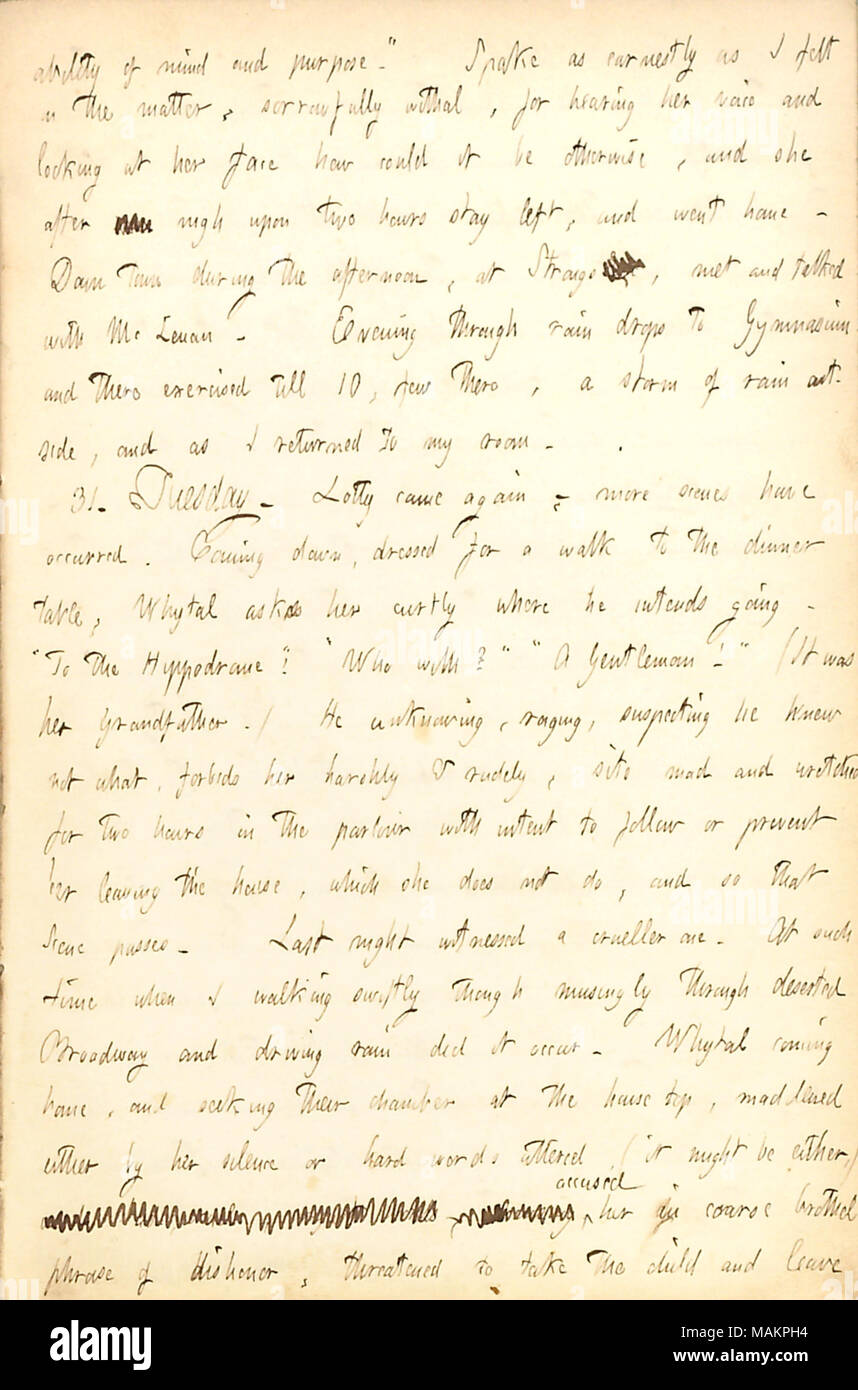 ability of mind and purpose." Spake as earnestly as I felt
in the matter, sorrowfully withal, for hearing her voice and
looking at her face how could it be otherwise, and she
after nigh upon two hours stay left, and went home –
Down Town during the afternoon, at Strongs, met and talked
with Mc Lenan – Evening through rain drops to Gymnasium
and there exercised till 10, few there, a storm of rain out-
side, and as I returned to my room – .
31. Tuesday – Lotty came again, more scenes have
occurred. Coming down, dressed for a walk to the dinner
table, Whytal asks her curtly where he intends going –
"To the Hyppodrome"! "Who with?" "A Gentleman!" (It was
her Grandfather.) He unknowing, raging, suspecting he knew
not what, forbids her harshly & rudely, sits mad and wretched
for two hours in the parlour with intent to follow or prevent
her leaving the house, which she does not do, and so that
scene passes – Last night witnessed a crueller one. At such
time when I walking swiftly though musingly through deserted
Broadway and driving rain did it occur – Whytal coming
home, and seeking their chamber at the house top, maddened
either by her silence or hard words uttered, (it might be either,)
accused her in coarse brothel
phrase of dishonor, threatened to take the child and leave
alamy
Image ID: MAKPH4
www.alamy.com